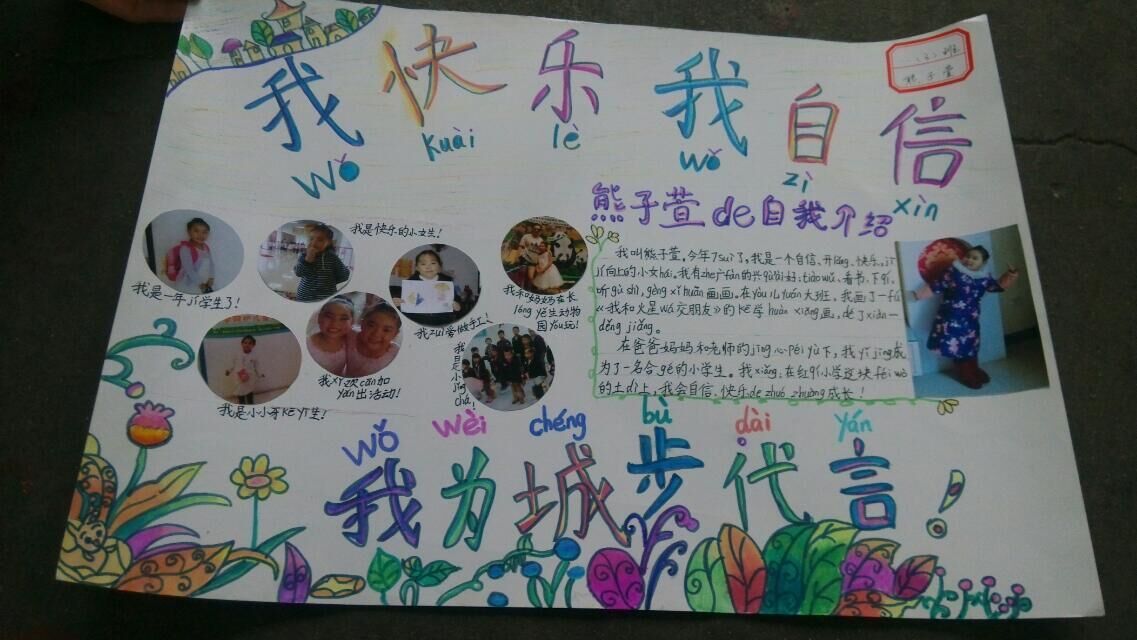 (3)班
熊子萱
我快乐我自信
wǒ kuài lè wǒ zì xìn
熊子萱de自我介绍
我叫熊子萱。今年7suì了,我是一个自信、开lǎng、快乐、jī
jí向上的小女hái。我有zhe
fán的兴qù
好:tiàowǔ、看书、下qí、
听gù shì,gèng xǐ huān画画。在yòu儿yuán大班,我画了一fú
《我和火星wá交朋友》的kē学huàn xiǎng画,dé了xiàn一
děng jiǎng。
在爸爸妈妈和老师的jīng心péi yù下,我yǐ jīng成
为了一名合gé的小学生。我xiāng:在红qí小学这块féi wò
的土dì上,我会自信、快乐de zhuó zhuàng成长!
我是一年jí学生了!
我是快乐的小女生!
我zuì爱做手工!
我和妈妈在长
lóng yě生动物
园yóu玩!
我是小小哥
我xǐ欢cān加
yǎn出活动!
我是小jǐng
chá!
wǒ wèi chéng bù dài yán
我为城步代言!